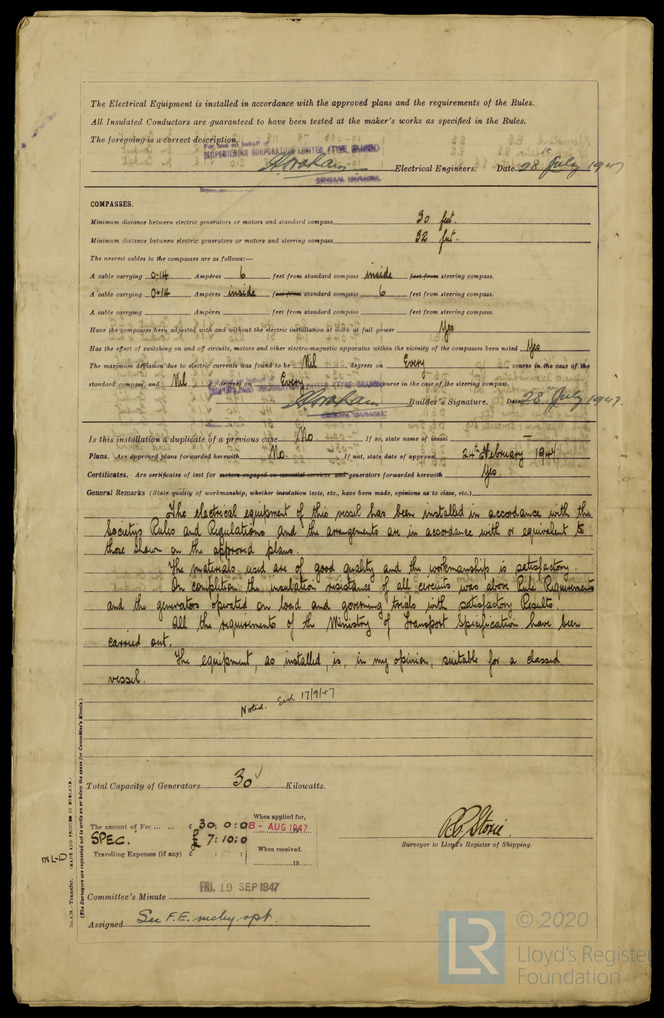 The Electrical Equipment is installed in accordance with the approved plans and the requirements of the Rules.
All Insulated Conductors are guaranteed to have been tested at the maker's works as specified in the Rules.
The foregoing is a correct description.
For and on behalf of
SHIPBUILDING CORPORATION LIMITED (TYNE BRANCH)
Electrical Engineers. Date 28th July 1947
GENERAL MANAGER.
COMPASSES.
Minimum distance between electric generators or motors and standard compass 30 feet.
Minimum distance between electric generators or motors and steering compass 32 feet.
The nearest cables to the compasses are as follows:—
A cable carrying 0.14 Ampères 6 feet from standard compass inside feet from steering compass.
A cable carrying 0.14 Ampères inside feet from standard compass 6 feet from steering compass.
A cable carrying Ampères feet from standard compass feet from steering compass.
Have the compasses been adjusted with and without the electric installation at work at full power Yes
Has the effect of switching on and off circuits, motors and other electro-magnetic apparatus within the vicinity of the compasses been noted Yes
The maximum deflation due to electric currents was found to be Nil degrees on Every course in the case of the
standard compass, and Nil degrees on Every course in the case of the steering compass.
Builder's Signature. Date 28th July 1947.
GENERAL MANAGER.
Is this installation a duplicate of a previous case No If so, state name of vessel —
Plans. Are approved plans forwarded herewith No. If not, state date of approval 24th February 194
Certificates. Are certificates of test for motors engaged on essential services and generators forwarded herewith Yes.
General Remarks (State quality of workmanship, whether insulation tests, etc., have been made, opinions as to class, etc.)
The electrical equipment of this vessel has been installed in accordance with the
Society's Rules and Regulations and the arrangements are in accordance with or equivalent to
those shown on the approved plans.
The materials used are of good quality and the workmanship is satisfactory.
On completion the insulation resistance of all circuits was above Rule Requirements
and the generators operated on load and governing trials with satisfactory Results.
All the requirements of the Ministry of Transport Specification have been
carried out.
The equipment, as installed, is, in my opinion, suitable for a classed
vessel.
Noted. 17/9/47
Total Capacity of Generators 30 Kilowatts.
The amount of Fee ... ... £ 30 : 0 : 0
When applied for,
8 - AUG 1947
SPEC. £ 7 : 10 : 0
Travelling Expenses (if any) £ : :
When received.
19
R.C. Storie.
Surveyor to Lloyd's Register of Shipping.
FRI. 19 SEP 1947
Committee's Minute
Assigned See F.E. mchy rpt.
Transfer. (MADE AND PRINTED IN ENGLAND.)
(The Surveyors are requested not to write on or below the space for Committee's Minute.)
LR
© 2020
Lloyd's Register
Foundation